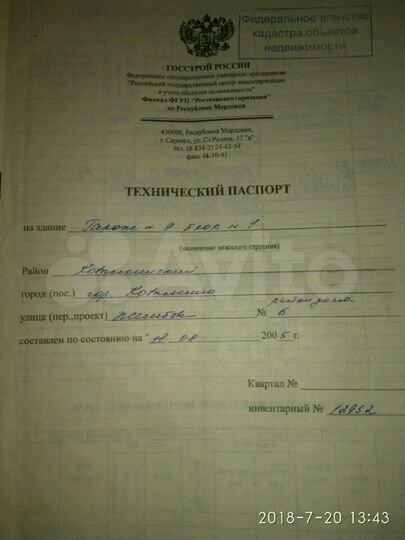 Федеральное агенство
кадастра объектов
недвижимости
ГОССТРОЙ РОССИИ
Федеральное государственное унитарное предприятие
"Российский государственный центр инвентаризации
и учета объектов недвижимости"
Филиал ФГУП "Ростехинвентаризация"
по Республике Мордовия
430000, Республика Мордовия,
г. Саранск, ул. Ст.Разина, 17 "а"
тел. (8-834-2) 24-43-54
факс 48-10-91
ТЕХНИЧЕСКИЙ ПАСПОРТ
на здание Гараж № 9 блок № 1
(назначение нежилого строения)
Район Ковылкинский
город (пос.) гор. Ковылкино
район дома
улица (пер.,проект) № 6
составлен по состоянию на "11 08 2005 г.
Квартал №
инвентарный № 12952
Avito
2018-7-20 13:43